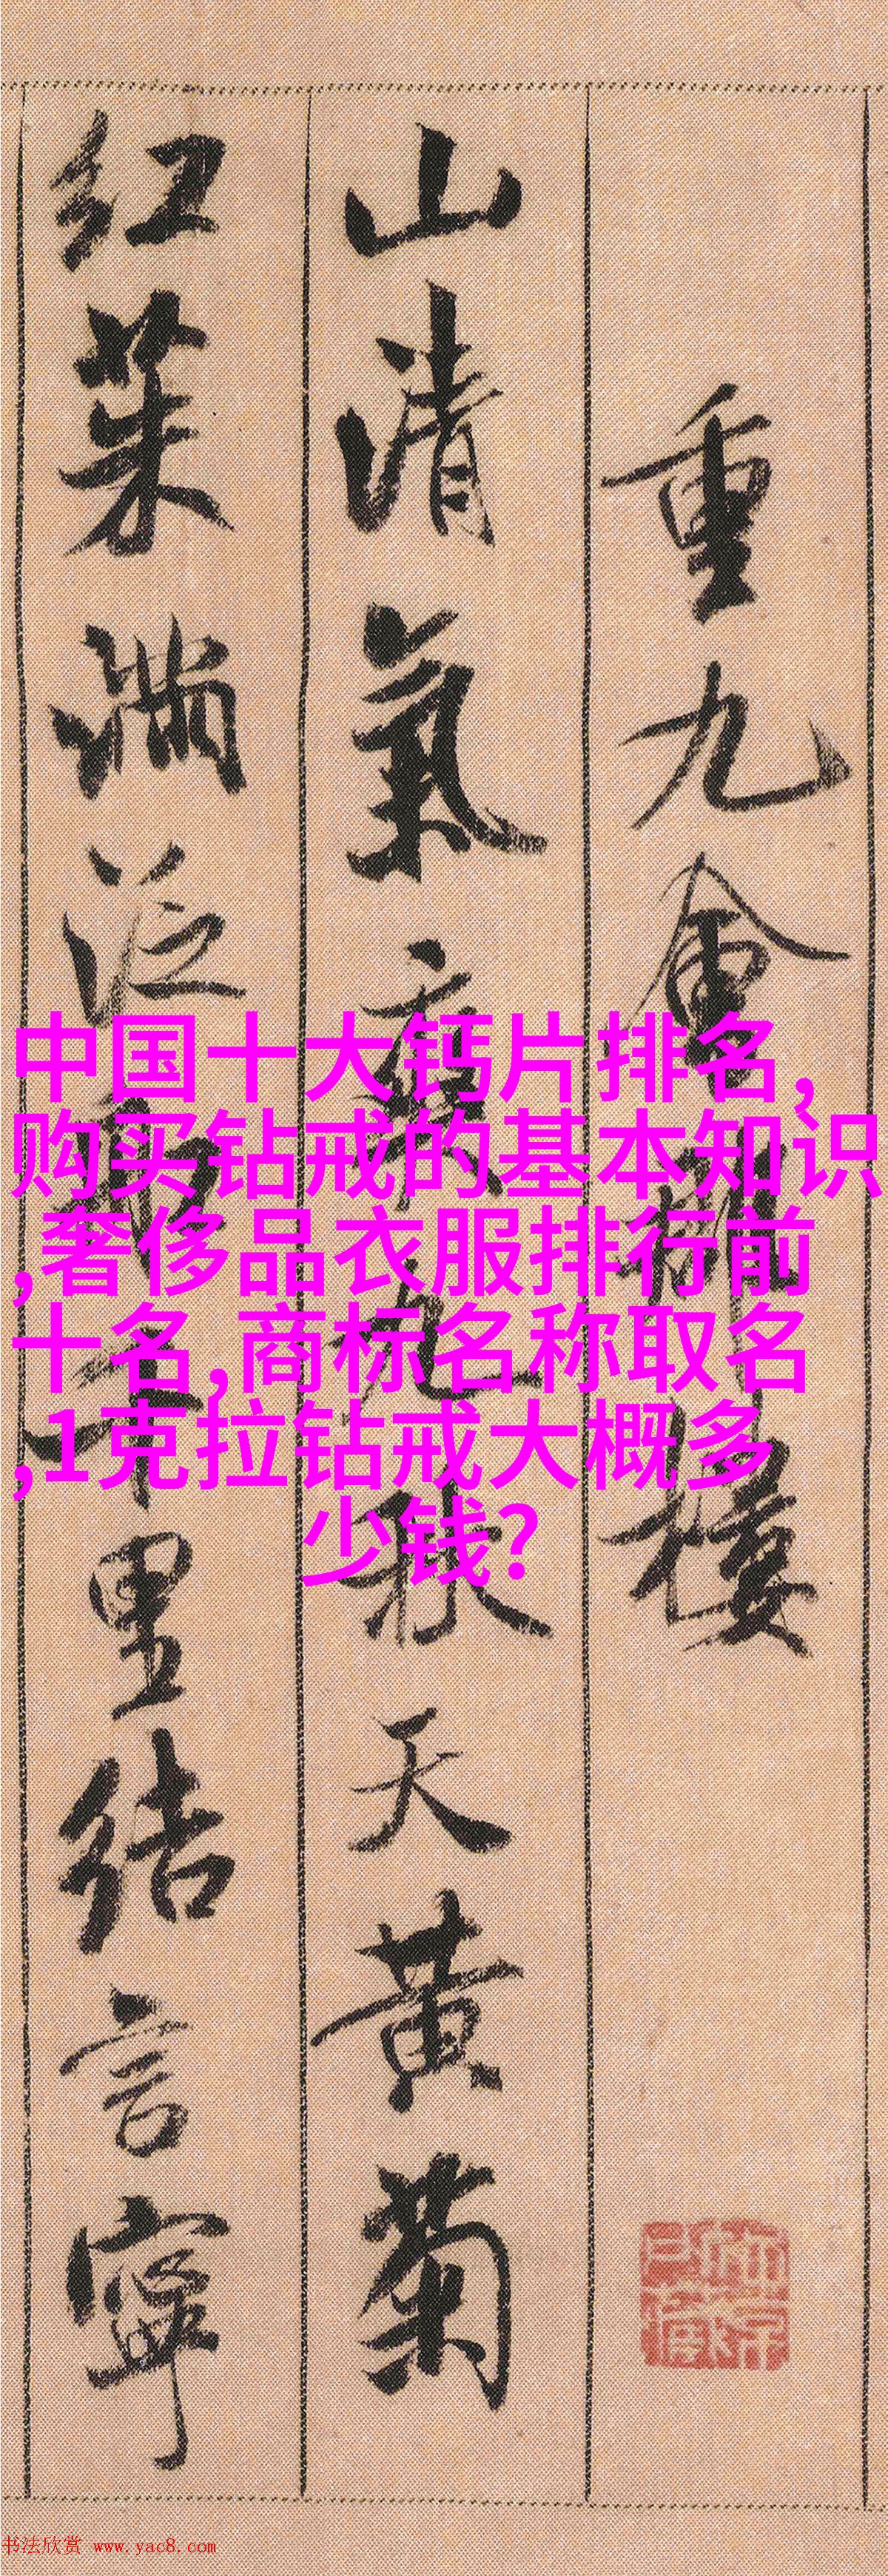 重九會郡樓
山清氣爽九秋天黄菊
紅茱滿泛船千里結言寧
中国十大钙片排名,
购买钻戒的基本知识
,奢侈品衣服排行前
十名,商标名称取名
,1克拉钻戒大概多
少钱?
书法欣赏 www.yac8.com